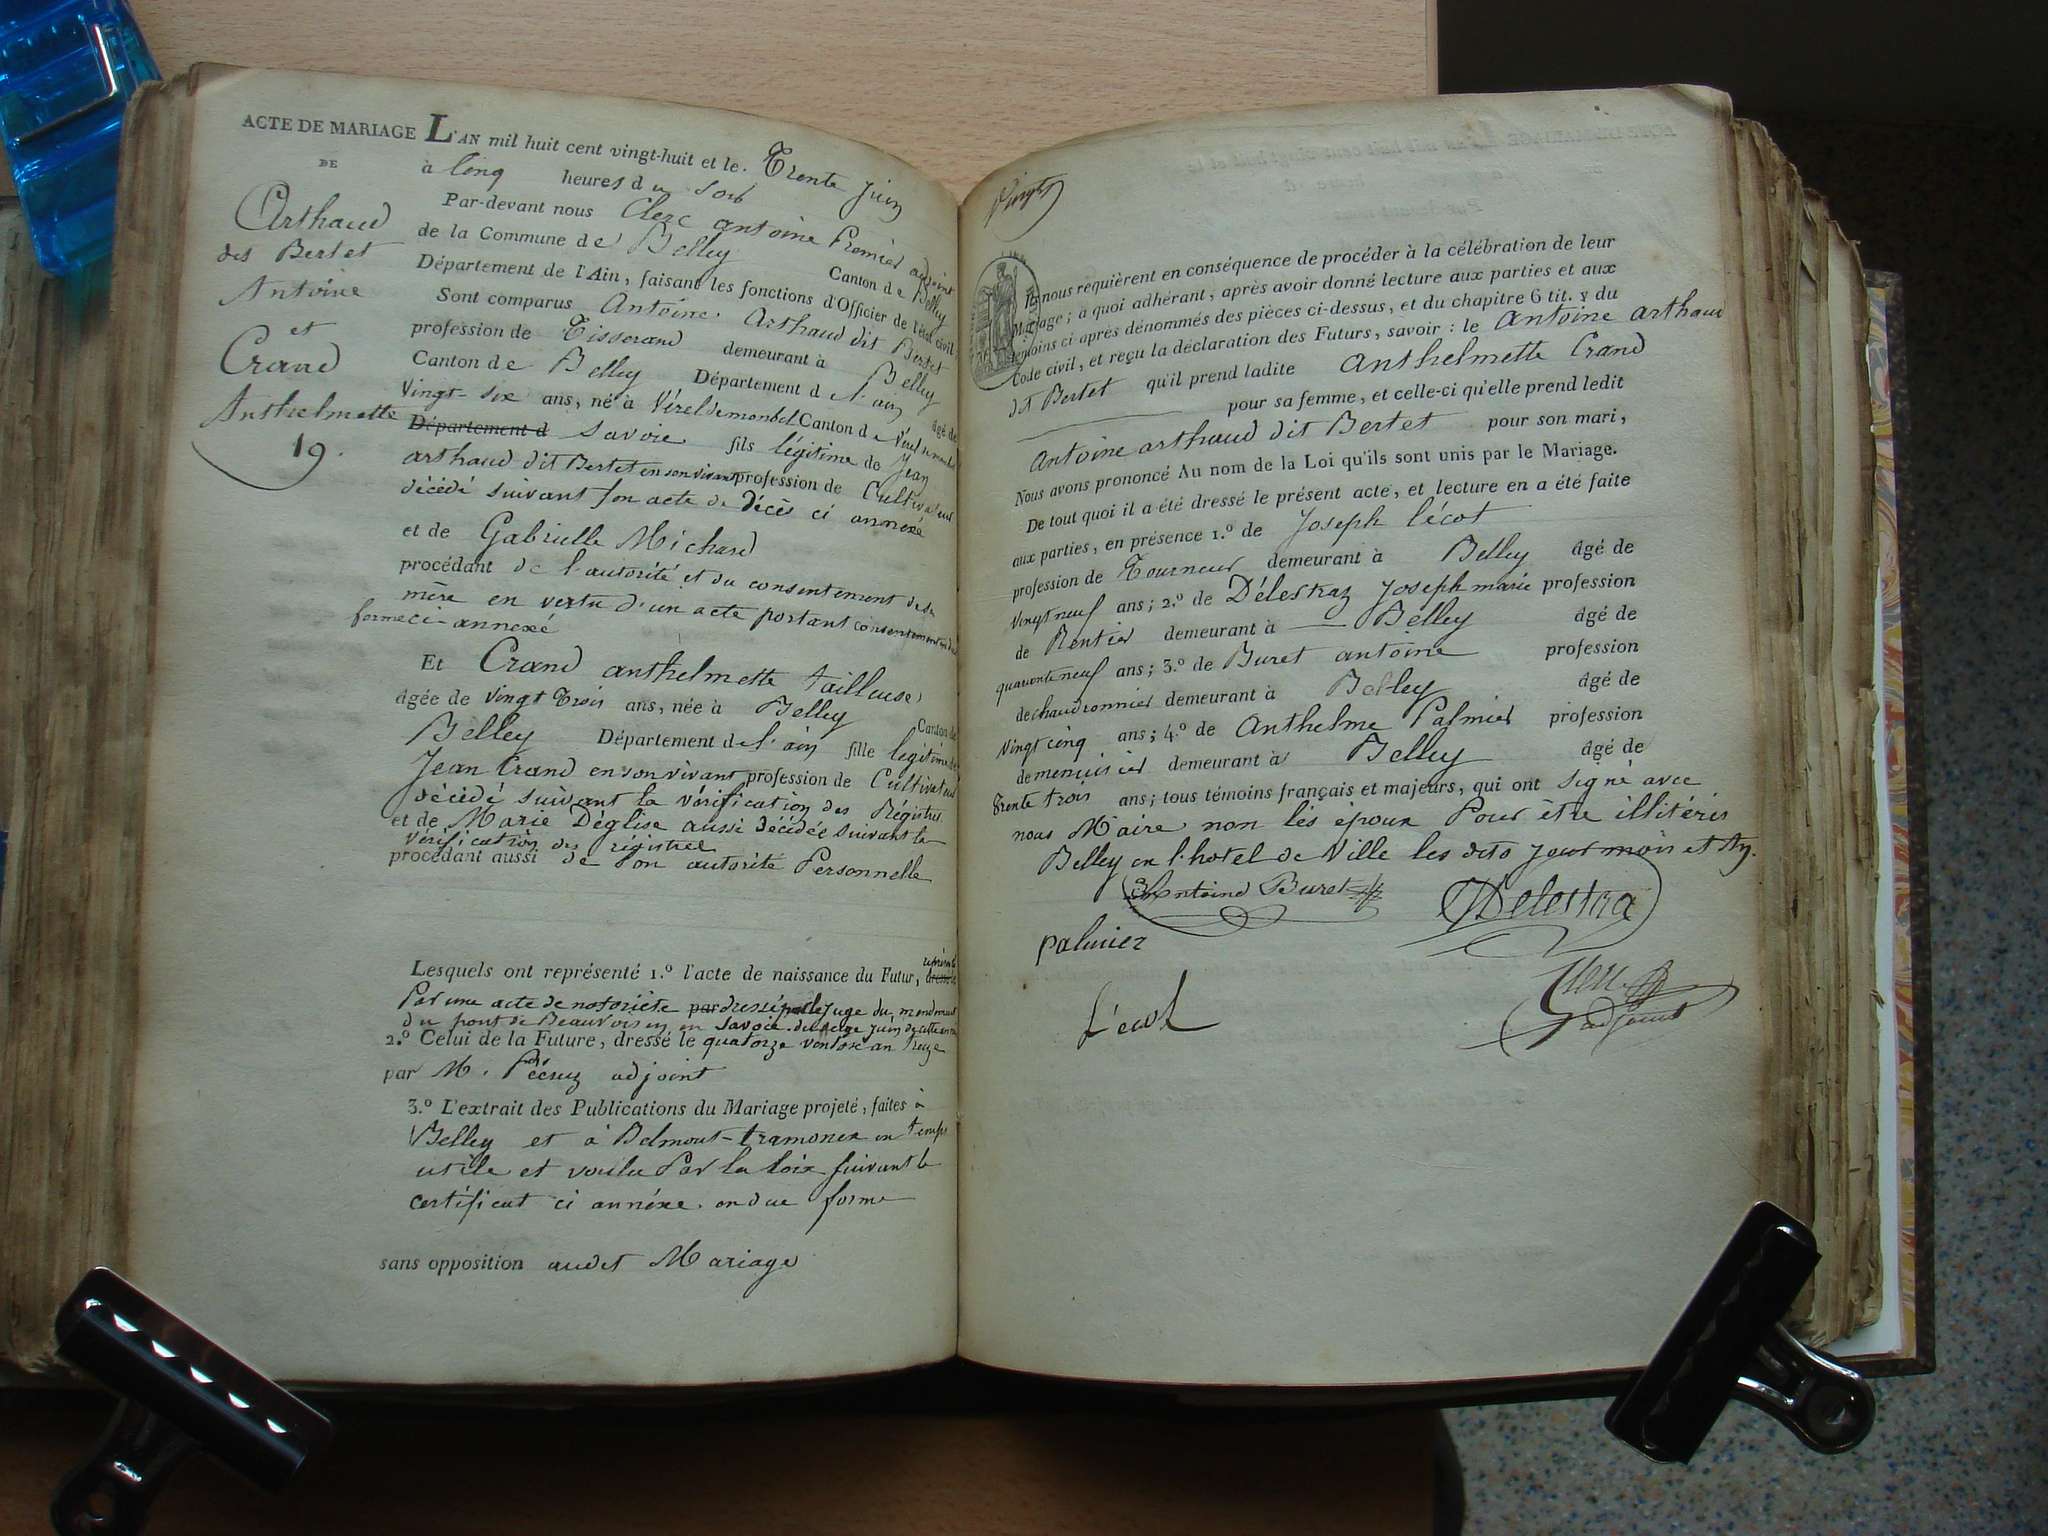 ACTE DE MARIAGE
DE
Arthaud
dit Bertet
Antoine
et
Crand
Anthelmette
19.
L'AN mil huit cent vingt-huit et le Trente Juin
à Cinq heures du Soir
Par-devant nous Clerc antoine Premier adjoint
de la Commune de Belley Canton de Belley
Département de l'Ain, faisant les fonctions d'Officier de l'état civil
Sont comparus Antoine Arthaud dit Bertet
profession de Tisserand demeurant à Belley
Canton de Belley Département de l'ain âgé de
vingt-six ans, né à Vérel de monbel Canton de
Département d savoie fils légitime de Jean
arthaud dit Bertet en son vivant profession de Cultivateur
décédé suivant son acte de Décès ci annexé
et de Gabrielle Michard
procédant de l'autorité et du consentement de sa
mère en vertu d'un acte portant consentement en due
forme ci-annexé
Et Crand anthelmette tailleuse,
âgée de vingt Trois ans, née à Belley Canton de
Belley Département de l'ain fille legitime de
Jean Crand en son vivant profession de Cultivateur
décédé suivant la vérification des Régistres
et de Marie Déglise aussi décédée suivant la
vérification des registres
procédant aussi de son autorité Personnelle
Lesquels ont représenté 1.º l'acte de naissance du Futur, dressé
Par une acte de notoriété par dressé par le Juge du mandement
du pont de Beauvoisin en Savoie du seize Juin de cette année
2.º Celui de la Future, dressé le quatorze ventose an treize
par M. adjoint
3.º L'extrait des Publications du Mariage projeté, faites à
Belley et à Belmont-tramonex en temps
utile et voulu Par la loix suivant le
certificat ci annéxe en due forme
sans opposition audet Mariage
Vingt
Ils nous requièrent en conséquence de procéder à la célébration de leur
Mariage; à quoi adhérant, après avoir donné lecture aux parties et aux
témoins ci après dénommés des pièces ci-dessus, et du chapitre 6 tit. 5 du
Code civil, et reçu la déclaration des Futurs, savoir: le Antoine arthaud
dit Bertet qu'il prend ladite Anthelmette Crand
pour sa femme, et celle-ci qu'elle prend ledit
Antoine arthaud dit Bertet pour son mari,
Nous avons prononcé Au nom de la Loi qu'ils sont unis par le Mariage.
De tout quoi il a été dressé le présent acte, et lecture en a été faite
aux parties, en présence 1.º de Joseph Lécot
profession de Tourneur demeurant à Belley âgé de
vingt neuf ans; 2.º de Délestraz Joseph marie profession
de Rentier demeurant à Belley âgé de
quarente neuf ans; 3.º de Buret antoine profession
de chaudronnier demeurant à Belley âgé de
vingt cinq ans; 4.º de Anthelme Palmier profession
de menuisier demeurant à Belley âgé de
trente trois ans; tous témoins français et majeurs, qui ont signé avec
nous Maire non les époux Pour être illitérés
Belley en l'hotel de Ville les dits jour mois et An.
Antoine Buret
Delestra
palmier
Clerc
adjoint
Lécot